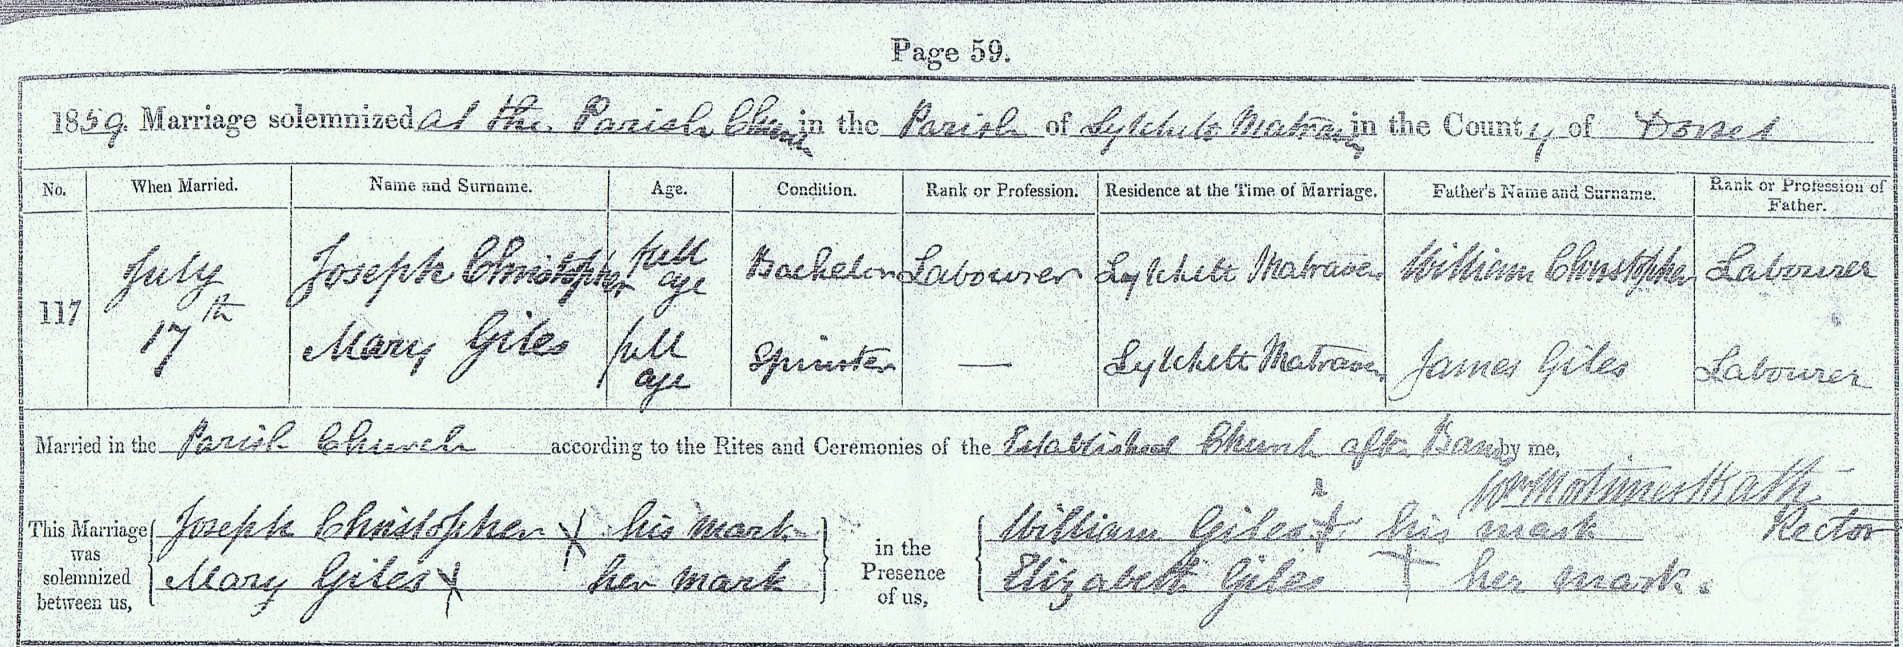 Page 59.
1859. Marriage solemnized at the Parish Church in the Parish of Lytchett Matravers in the County of Dorset
No. When Married. Name and Surname. Age. Condition. Rank or Profession. Residence at the Time of Marriage. Father's Name and Surname. Rank or Profession of Father.
117 July 17th Joseph Christopher full age Bachelor Labourer Lytchett Matravers William Christopher Labourer
Mary Giles full age Spinster — Lytchett Matravers James Giles Labourer
Married in the Parish Church according to the Rites and Ceremonies of the Established Church after Banns by me,
Wm Mortimer Heath
Rector
This Marriage was solemnized between us, Joseph Christopher X his mark in the Presence of us, William Giles X his mark
Mary Giles X her mark Elizabeth Giles X her mark.